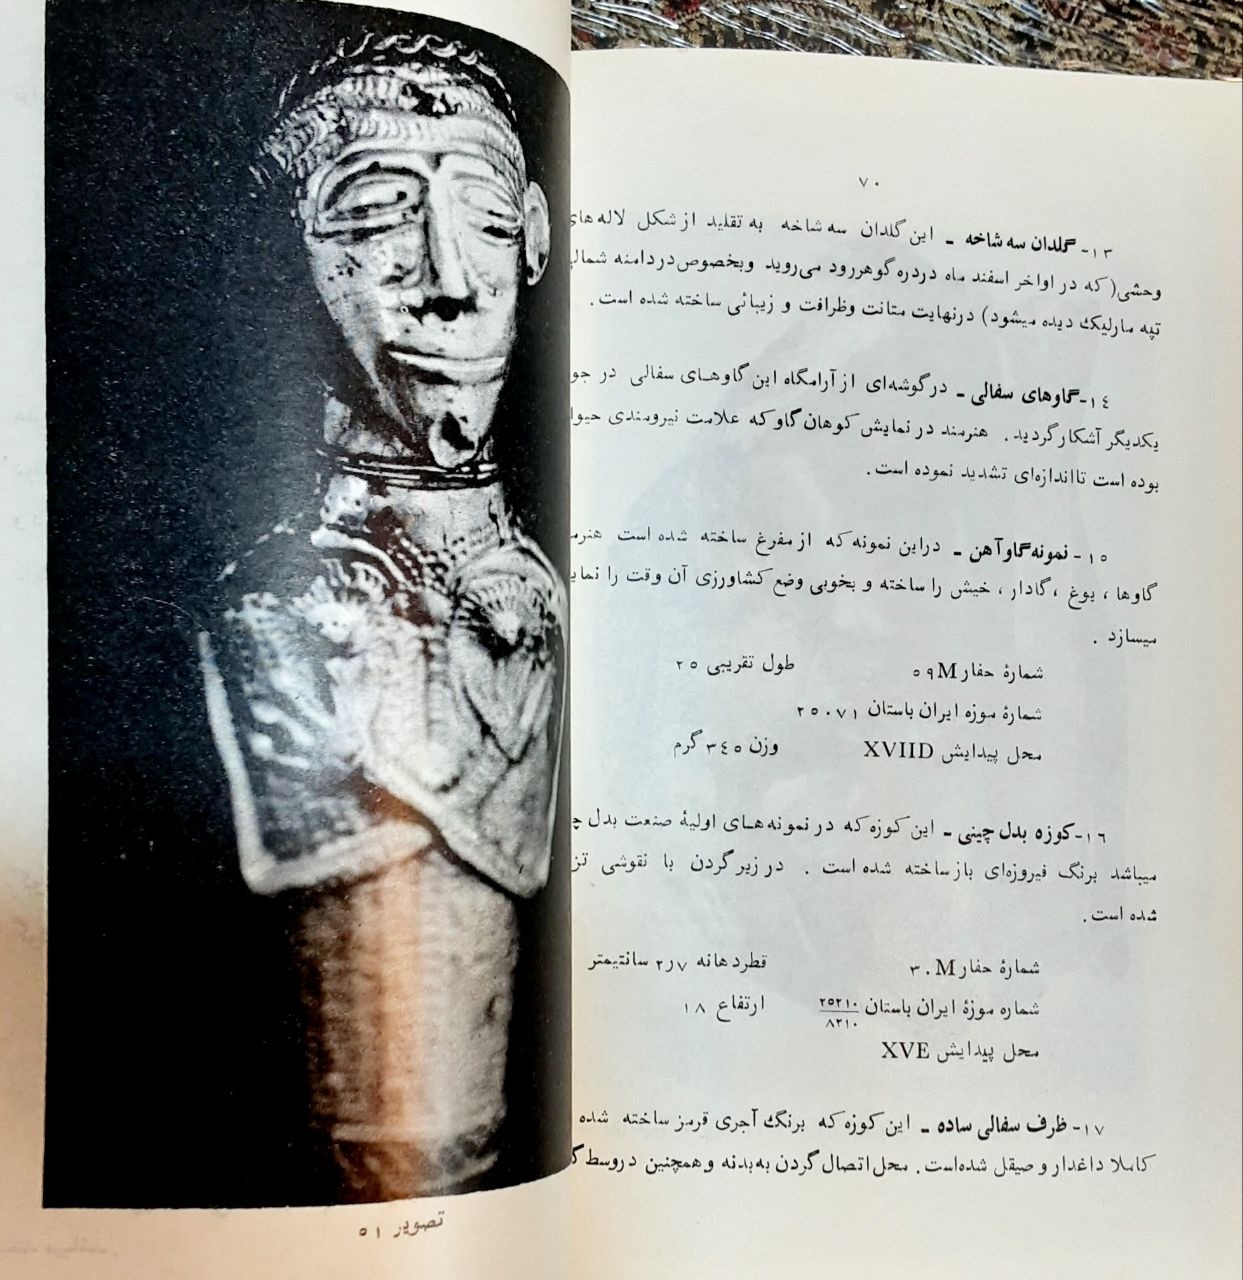 ۷۰
۱۳- گلدان سه شاخه ـ این گلدان سه شاخه به تقلید از شکل لاله‌های
وحشی (که در اواخر اسفند ماه در دره گوهررود می‌روید و بخصوص در دامنه
تپه مارلیک دیده میشود) در نهایت متانت و ظرافت و زیبائی ساخته شده است.
۱٤- گاوهای سفالی ـ در گوشه‌ای از آرامگاه این گاوهای سفالی در
یکدیگر آشکار گردید. هنرمند در نمایش کوهان گاو که علامت نیرومندی
بوده است تا اندازه‌ای تشدید نموده است.
۱٥- نمونه گاوآهن ـ در این نمونه که از مفرغ ساخته شده است
گاوها، یوغ، گادار، خیش را ساخته و بخوبی وضع کشاورزی آن وقت را
میسازد.
شمارهٔ حفار ٥۹M طول تقریبی ۲٥
شمارهٔ موزه ایران باستان ۲٥۰۷۱
محل پیدایش XVIID وزن ۳٤٥ گرم
۱٦- کوزه بدل چینی ـ این کوزه که در نمونه‌های اولیهٔ صنعت بدل
میباشد برنگ فیروزه‌ای باز ساخته شده است. در زیر گردن با نقوشی
شده است.
شمارهٔ حفار ۳۰M قطر دهانه ۲٫۷ سانتیمتر
شماره موزهٔ ایران باستان ۲٥۲۱۰/۸۲۱۰ ارتفاع ۱۸
محل پیدایش XVE
۱۷- ظرف سفالی ساده ـ این کوزه که برنگ آجری قرمز ساخته شده
کاملا داغدار و صیقل شده‌است. محل اتصال گردن به بدنه و همچنین در وسط
تصویر ٥۱